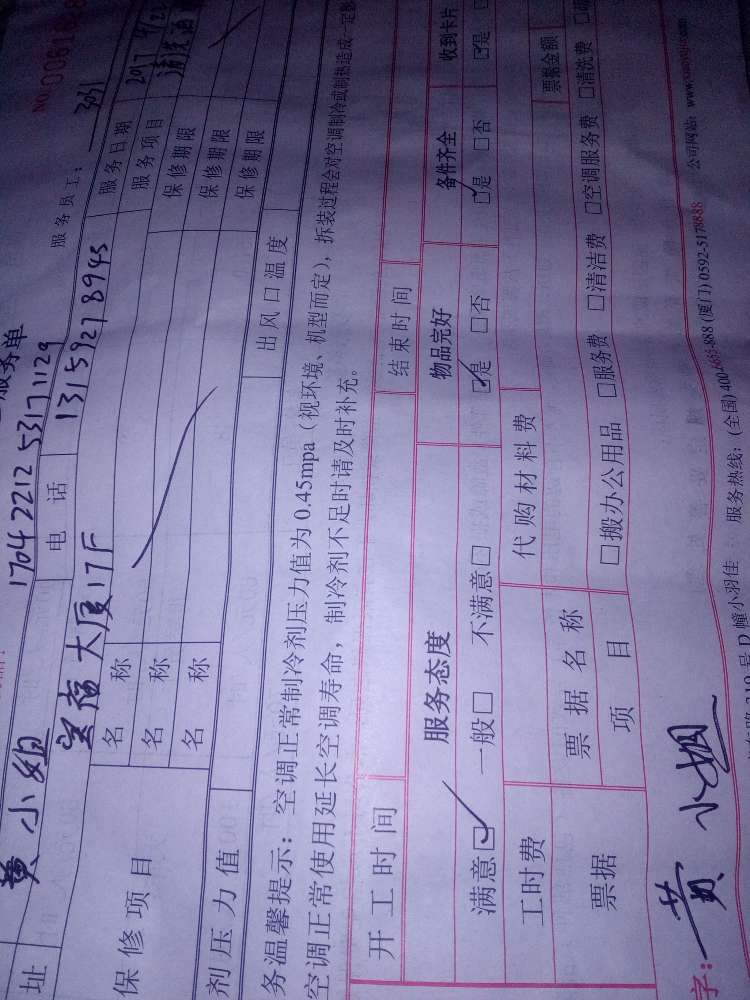 服务单
NO
黄小姐 1704221253171129 服务员工：3031
址 宝福大厦17F 电话 13159278945 服务日期 2017
保修项目 名称 服务项目
名称 保修期限
名称 保修期限
保修期限
剂压力值 出风口温度
务温馨提示：空调正常制冷剂压力值为0.45mpa（视环境、机型而定），拆装过程会对空调制冷或制热造成一定
空调正常使用延长空调寿命，制冷剂不足时请及时补充。
开工时间 结束时间
服务态度 物品完好 备件齐全 收到卡片
满意☑ 一般□ 不满意□ ☑是 □否 ☑是 □否 ☑是
工时费 代购材料费 票据金额
票据 票据名称
项目 □搬办公用品 □服务费 □清洁费 □空调服务费 □清洗费
字：黄小姐
D幢小羽佳 服务热线：(全国)400-6885-888 (厦门)0592-5178888 公司网站：www.xiaoyujia.com